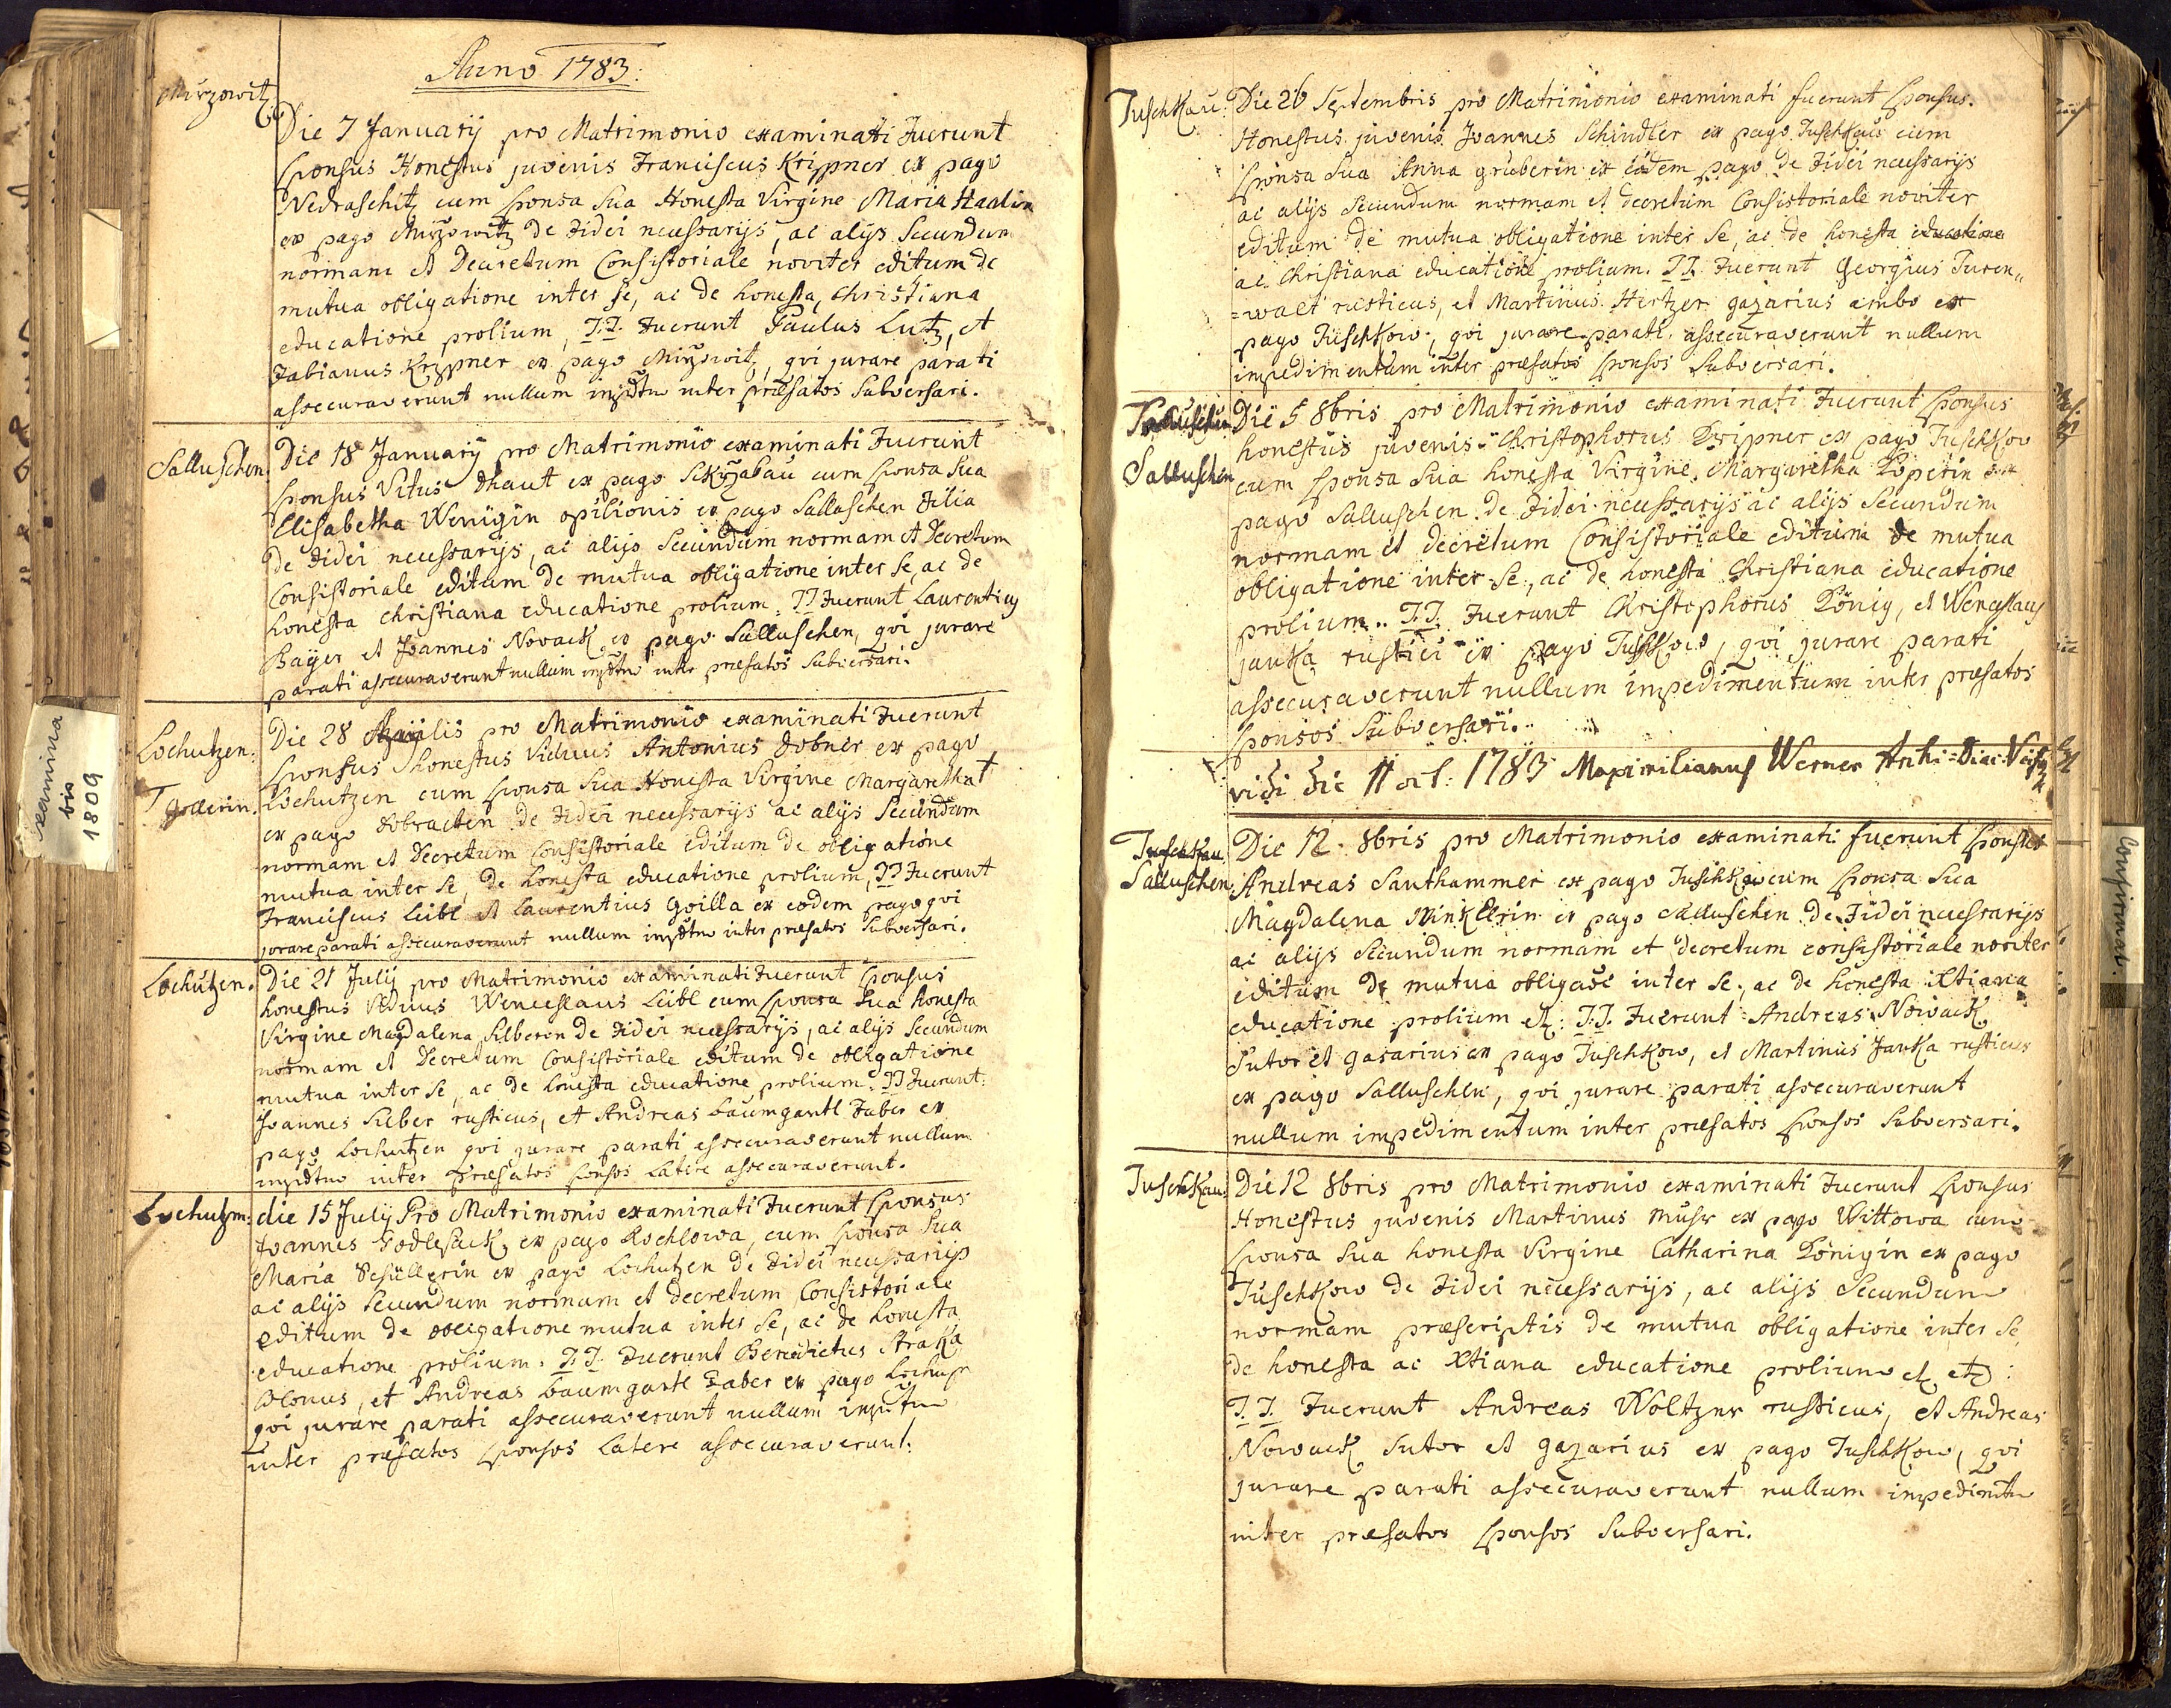 Anno 1783.
Mirzowitz
Die 7 Januarÿ pro Matrimonio examinati Fuerunt
sponsus Honestus juvenis Franciscus Krippner ex pago
Nedraschitz cum sponsa sua Honesta Virgine Maria Haalin
ex pago Mirzowitz de Fidei necessarÿs, ac alÿs Secundum
normam et Decretum Consistoriale noviter editum de
mutua obligatione inter se, ac de honesta, christiana
educatione prolium, T.T. Fuerunt Paulus Lutz, et
Fabianus Krippner ex pago Mirzowitz, qvi jurare parati
assecuraverunt nullum impdtm inter præfatos Subversari.
Salluschen.
Die 18 Januarÿ pro Matrimonio examinati Fuerunt
sponsus Vitus dhaut ex pago cum sponsa sua
Elisabetha Wenigin opilionis ex pago Salluschen Filia
de Fidei necessarÿs, ac alÿs Secundum normam et Decretum
Consistoriale editum de mutua obligatione inter se, ac de
honesta christiana educatione prolium. TT Fuerunt Laurentius
Baÿer et Joannes Novack ex pago Salluschen, qvi jurare
parati assecuraverunt nullum impdtm inter præfatos Subversari.
Lochutzen.
Die 28 Aprilis pro Matrimonio examinati Fuerunt
sponsus honestus Viduus Antonius Dobner ex pago
Lochutzen cum sponsa sua Honesta Virgine Margaretha †
† Gollerin.
ex pago Dobracken de Fidei necessarÿs ac alÿs Secundum
normam et Decretum Consistoriale editum de obligatione
mutua inter se, de honesta educatione prolium, TT Fuerunt
Franciscus Leibl et Laurentius Goilla ex eodem pago qvi
jurare parati assecuraverunt nullum impdtm inter præfatos Subversari.
Lochutzen.
Die 21 Julÿ pro Matrimonio examinati Fuerunt sponsus
honestus Viduus Wenceslaus Leibl cum sponsa sua honesta
Virgine Magdalena Silberin de Fidei necessarÿs, ac alÿs Secundum
normam et Decretum Consistoriale editum de obligatione
mutua inter se, ac de honesta educatione prolium. TT Fuerunt.
Joannes Silber rusticus, et Andreas Baumgartl Faber ex
pago Lochutzen qvi jurare parati assecuraverunt nullum
impdtm inter præfatos sponsos Latere assecuraverunt.
Lochutzen:
die 15 Julÿ Pro Matrimonio examinati Fuerunt sponsus
Joannes Godlesack ex pago Rochlowa, cum sponsa sua
Maria Schüllerin ex pago Lochutzen de Fidei necessarÿs
ac alÿs Secundum normam et decretum Consistoriale
editum de obligatione mutua inter se, ac de honesta
educatione prolium. T.T. Fuerunt Benedictus Straka
Colonus, et Andreas Baumgartl Faber ex pago
qvi jurare parati assecuraverunt nullum impdtm
inter præfatos sponsos Latere assecuraverunt.
Tuschkau.
Die 26 Septembris pro Matrimonio examinati fuerunt sponsus.
Honestus juvenis Joannes Schindler ex pago Tuschkau cum
sponsa sua Anna gruberin ex eodem pago de Fidei necessarÿs
ac alÿs Secundum normam et decretum Consistoriale noviter
editum de mutua obligatione inter se, ac de honesta educatione
ac. Christiana educatione prolium. T.T. Fuerunt Georgius Turen,,
=walt rusticus, et Martinus Hertzer gazarius ambo ex
pago Tuschkow, qvi jurare parati assecuraverunt nullum
impedimentum inter præfatos sponsos Subversari.
Salluschen
Die 5 8bris pro Matrimonio examinati Fuerunt sponsus
honestus juvenis Christophorus Kripner ex pago Tuschkow
cum sponsa sua honesta Virgine Margaretha Löperin ex
pago Salluschen de Fidei necessarÿs ac alÿs Secundum
normam et decretum Consistoriale editum de mutua
obligatione inter se, ac de honesta Christiana educatione
prolium. T.T. Fuerunt Christophorus König, et Wenceslaus
Janka rustici ex pago Tuschkow, qvi jurare parati
assecuraverunt nullum impedimentum inter præfatos
sponsos Subversari.
vidi die 11 oct: 1783 Maximilianus Werner Archi=Diac:
Tuschkau.
Salluschen.
Die 12. 8bris pro Matrimonio examinati fuerunt sponsus
Andreas Santhammer ex pago Tuschkow cum sponsa sua
Magdalena Winklerin ex pago Salluschen de Fidei necessarÿs
ac alÿs Secundum normam et decretum consistoriale noviter
editum de mutua obligaõe inter se, ac de honesta Xtiana
educatione prolium etz: T.T. Fuerunt Andreas Nowack
Sutor et gazarius ex pago Tuschkow, et Martinus Janka rusticus
ex pago Salluschen, qvi jurare parati assecuraverunt
nullum impedimentum inter præfatos sponsos Subversari.
Tuschkau.
Die 12 8bris pro Matrimonio examinati Fuerunt sponsus
Honestus juvenis Martinus ex pago Wittowa cum
sponsa sua honesta Virgine Catharina Königin ex pago
Tuschkow de Fidei necessarÿs, ac alÿs Secundum
normam præscriptis de mutua obligatione inter se,
de honesta ac Xtiana educatione prolium etz etz:
T.T. Fuerunt Andreas Woltzner rusticus, et Andreas
Nowack Sutor et gazarius ex pago Tuschkow, qvi
jurare parati assecuraverunt nullum impedimtm
inter præfatos sponsos Subversari.
examina
bis
1809